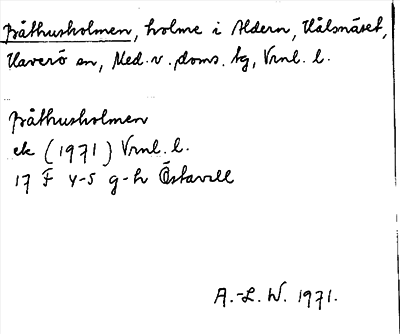 Båthusholmen, holme i Aldern, Kålsnäset,
Haverö sn, Med. v. doms. tg, Vrnl. l.
Båthusholmen
ek (1971) Vrnl. l.
17 F 4-5 g-h Östavall
A.-L. W. 1971.